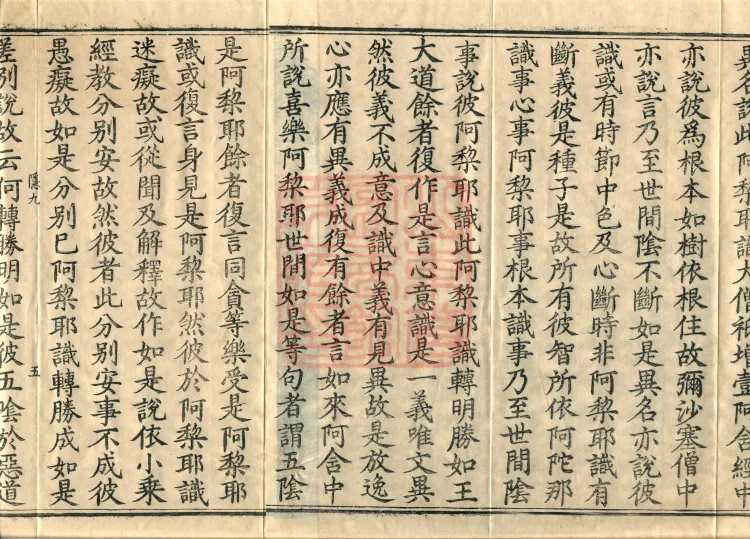 異名說此阿黎耶識大僧祇增壹阿含經中
亦說彼為根本如樹依根住故彌沙塞僧中
亦說言乃至世間陰不斷如是異名亦說彼
識或有時節中色及心斷時非阿黎耶識有
斷義彼是種子是故所有彼智所依阿陀那
識事心事阿黎耶事根本識事乃至世間陰
事說彼阿黎耶識此阿黎耶識轉明勝如王
大道餘者復作是言心意識是一義唯文異
然彼義不成意及識中義有見異故是故逸
心亦應有異義成復有餘者言如來阿含中
所說喜樂阿黎耶世間如是等句者謂五陰
是阿黎耶餘者復言同貪等樂受是阿黎耶
識或復言身見是阿黎耶然彼於阿黎耶識
迷癡故或從聞及解釋故作如是說依小乘
經教分別安故然彼者此分別安事不成彼
愚癡故如是分別已阿黎耶識轉勝成如是
隱九 五
差別說故云何轉勝明如是彼五陰於惡道